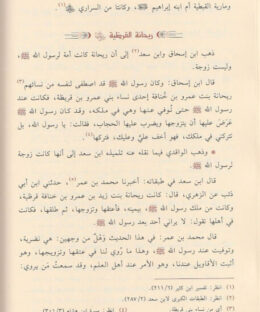 ومارية القبطية أم ابنه إبراهيم ﷺ، وكانتا من السراري ﷺ(١).
ريحانة القرظية
ذهب ابن إسحاق وابن سعد(٢) إلى أن ريحانة كانت أمة لرسول الله ﷺ،
وليست زوجة.
قال ابن إسحاق: وكان رسول الله ﷺ قد اصطفى لنفسه من نسائهم(٣)
ريحانة بنت عمرو بن خُنافة إحدى نساء بني عمرو بن قريظة، فكانت عند
رسول الله ﷺ حتى تُوفي عنها وهي في ملكه، وقد كان رسول الله ﷺ
عَرَض عليها أن يتزوجها ويضرب عليها الحجاب، فقالت: يا رسول الله، بل
تتركني في ملكك، فهو أخف عليَّ وعليك، فتركها(٤).
وذهب الواقدي فيما نقله عنه تلميذه ابن سعد إلى أنها كانت زوجة
لرسول الله ﷺ.
قال ابن سعد في طبقاته: أخبرنا محمد بن عمر(٥)، حدثني ابن أبي
ذئب عن الزهري، قال: كانت ريحانة بنت زيد بن عمرو بن خنافة قرظية،
وكانت من ملك رسول الله ﷺ بيمينه، فأعتقها وتزوجها، ثم طلقها، فكانت
في أهلها تقول: لا يراني أحد بعد رسول الله ﷺ.
قال محمد بن عمر: في هذا الحديث وَهَلٌ من وجهين: هي نضرية،
وتوفيت عند رسول الله ﷺ، وهذا ما رُوي لنا في عتقها وتزويجها، وهو
أثبت الأقاويل عندنا، وهو الأمر عند أهل العلم، وقد سمعتُ مَن يروي:
(١) انظر: تفسير ابن كثير
(٢) انظر: الطبقات الكبرى لابن سعد
(٣) أي من نساء بني قريظة.